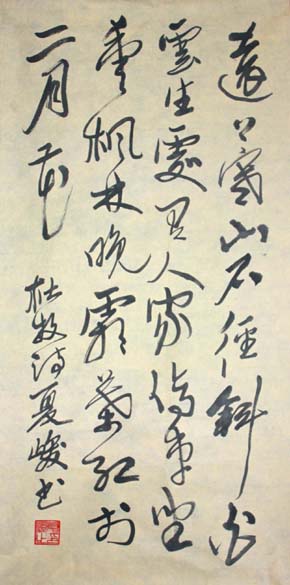 遠上寒山石徑斜白
雲生處有人家停車坐
愛楓林晚霜葉紅於
二月花
杜牧诗夏峻书